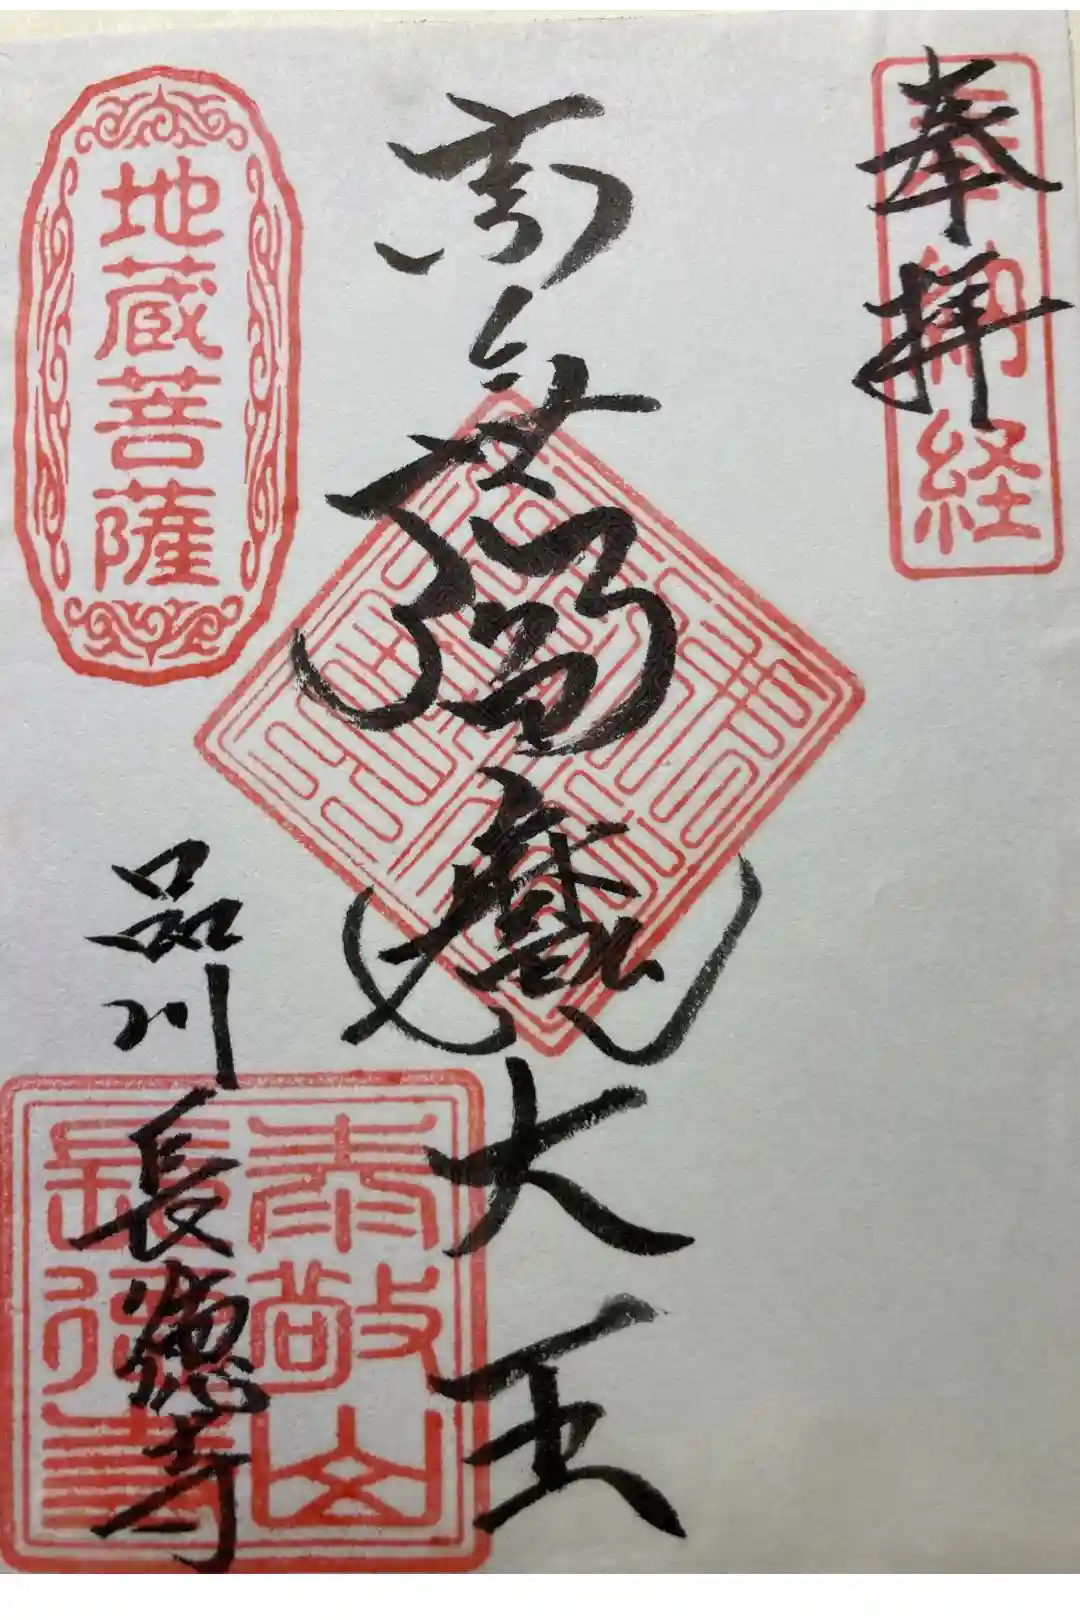 奉拝
奉納経
南無閻魔大王
地蔵菩薩
品川長徳寺
長徳寺